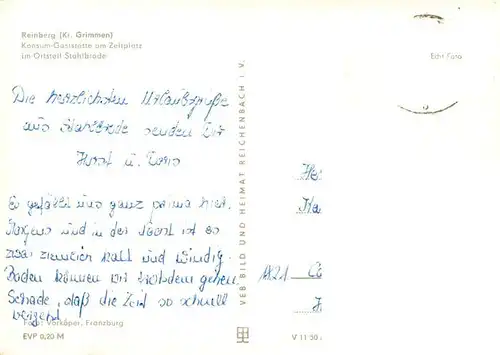 Reinberg (Kr. Grimmen)
Konsum-Gaststätte am Zeltplatz
im Ortsteil Stahlbrode
Echt Foto
Die herzlichsten Urlaubsgrüße
aus Stahlbrode senden Dir
Horst u. Doris
Es gefällt uns ganz prima hier.
Morgens und in der Nacht ist es
zwar ziemlich kalt und windig.
Baden können wir trotzdem gehen.
Schade, daß die Zeit so schnell
vergeht.
Foto: Vorköper, Franzburg
EVP 0,20 M
VEB BILD UND HEIMAT REICHENBACH I. V.
V 11 50